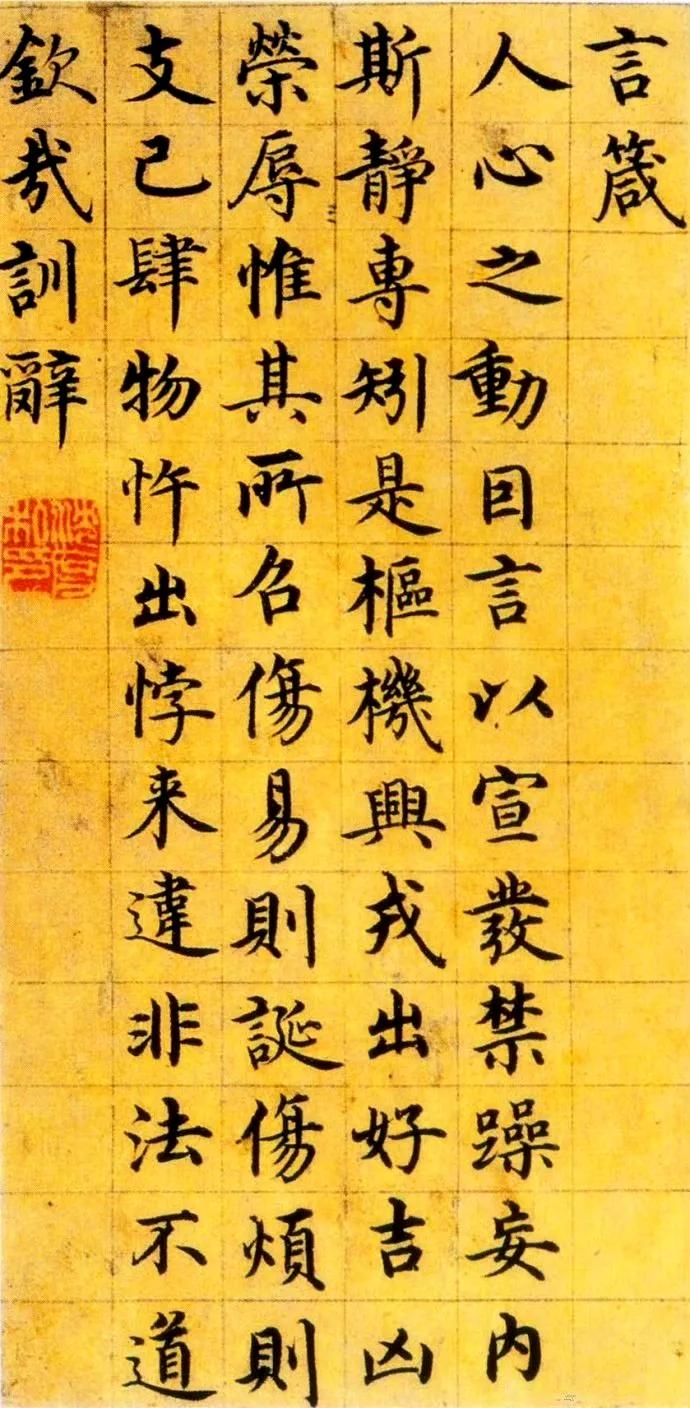 言箴
人心之動囙言以宣發禁躁妄内
斯靜專矧是樞機興戎出好吉凶
榮辱惟其所召傷易則誕傷煩則
支己肆物忤出悖来違非法不道
欽哉訓辭